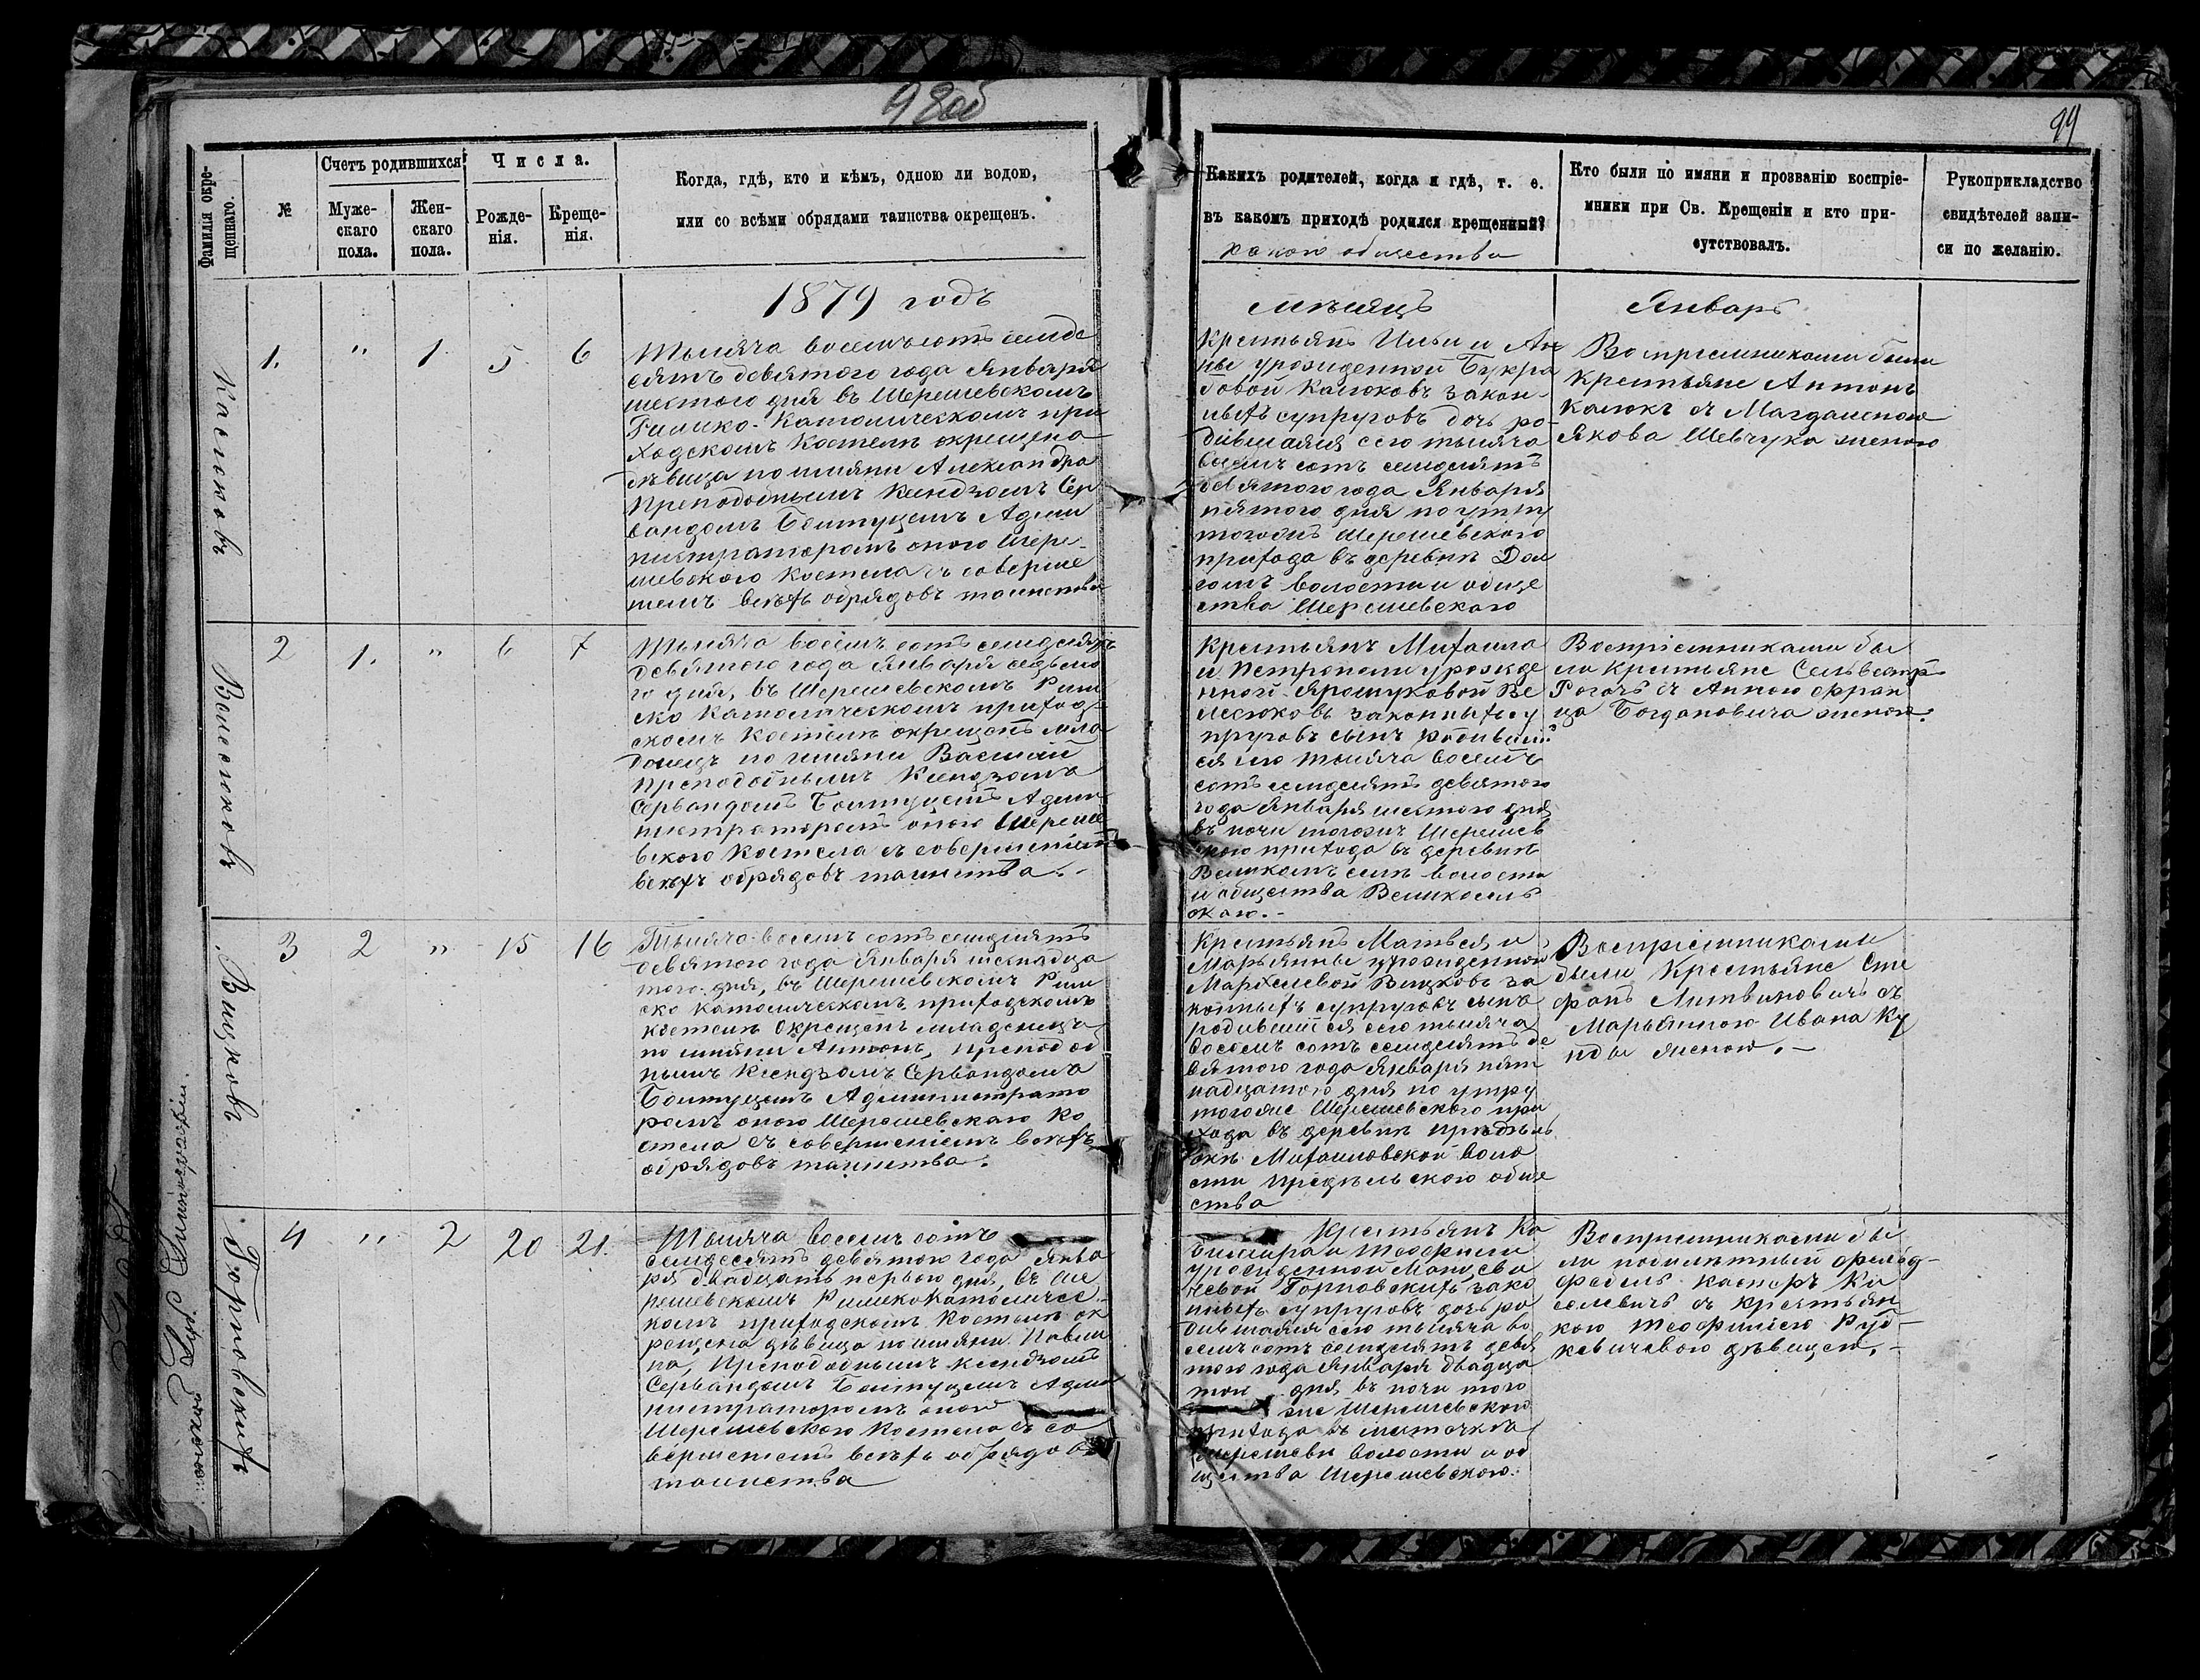 98об
99
Фамилія окре-
щеннаго.
№
Счетъ родившихся
Муже-
скаго
пола.
Жен-
скаго
пола.
Числа.
Рожде-
нія.
Креще-
нія.
Когда, гдѣ, кто и кѣмъ, одною ли водою,
или со всѣми обрядами таинства окрещенъ.
Какихъ родителей, когда и гдѣ, т. е.
въ какомъ приходѣ родился крещенный?
какого общества
Кто были по имяни и прозванію воспріе-
мники при Св. Крещеніи и кто при-
сутствовалъ.
Рукоприкладство
свидѣтелей запи-
си по желанію.
1879 годъ
мѣсяцъ
Январь
Касюковъ
1.
"
1
5
6
Тысяча восемьсотъ семьде
сятъ девятого года Января
шестого дня въ Шерешевскомъ
Римско-Католическомъ при
ходскомъ костелѣ окрещена
дѣвица по имяни Александра
Преподобнымъ Ксендзомъ Сер
вандомъ Адми
нистраторомъ оного Шере-
шевского Костела съ соверше
ніемъ всѣхъ обрядовъ таинства
Крестьянъ Ильи и Ан
ны урожденной
Касюковъ закон-
ныхъ супруговъ дочь ро-
дившаяся сего тысяча
восемь сотъ семдесятъ
девятого года Января
пятого дня по утру
тогожъ Шерешевского
прихода въ деревни
волости и обще
ства Шерешевского
Воспріемниками были
Крестьяне Антонъ
Касюкъ съ Магдаленою
Якова Шевчука женою
Волесюковъ
2
1.
"
6
7
Тысяча восемь сотъ семдесятъ
девятого года Января седьмо
го дня, въ Шерешевскомъ Рим
ско Католическомъ приход-
скомъ Костелѣ окрещенъ мла
денецъ по имяни Василій
Преподобнымъ Ксендзомъ
Сервандомъ Адми
нистраторомъ оного Шереше
вского Костела съ совершеніемъ
всѣхъ обрядовъ таинства.-
Крестьянъ Михаила
и Петронели урожде
нной Ярошуковой Во
лесюковъ законныхъ су
пруговъ сынъ родивший
ся сего тысяча восемь
сотъ семдесятъ девятого
года Января шестого дня
въ ночи тогожъ Шерешев
ского прихода въ деревнѣ
Великомъ селѣ волости
и общества Великосель
ского.-
Воспріемниками бы
ли Крестьяне Сельвестръ
Рогачъ съ Анною Фран
ца Богдановича женою.
Вицковъ
3
2
"
15
16
Тысяча восемь сотъ семдесятъ
девятого года Января шеснадца
того дня, въ Шерешевскомъ Рим
ско Католическомъ приходскомъ
костелѣ окрещенъ младенецъ
по имяни Антонъ, преподоб
нымъ Ксендзомъ Сервандомъ
Администрато
ромъ оного Шерешевскаго Ко
стела съ совершеніемъ всѣхъ
обрядовъ таинства.
Крестьянъ Матвея и
Марьянны урожденной
Вицковъ за
конныхъ супруговъ сынъ
родившійся сего тысяча
восемь сотъ семдесятъ де
вятого года Января пят
надцатого дня по утру
тогоже Шерешевского при
хода въ деревни Придѣль
скѣ Михаиловской воло
сти Придѣльского обще
ства
Воспріемниками
были Крестьяне Сте
фанъ Литвиновичъ съ
Марьянною Ивана Ку
нды женою.-
Горновскихъ
4
"
2
20
21.
Тысяча восемь сотъ
семдесятъ девятого года Янва
ря двадцать первого дня, въ Ше
решевскомъ Римско Католичес-
комъ приходскомъ Костелѣ ок
рещена дѣвица по имяни Павли
на, Преподобнымъ Ксендзомъ
Сервандомъ Адми
нистраторомъ оного
Шерешевского Костела съ со
вершеніемъ всѣхъ обрядовъ
таинства
Крестьянъ Ка
зимира и Теофили
урожденной
Горновскихъ зако
нныхъ супруговъ дочь ро
дившаяся сего тысяча во
семъ сотъ семдесятъ девя
того года Января двадца
того дня въ ночи того
же Шерешевского
прихода въ мѣстечкѣ
Шерешеви волости и об
щества Шерешевского.
Воспріемниками бы
ли Касперъ Ки
селевичъ съ крестьян
кою Теофилією Руд-
кевичевою дѣвицею.-